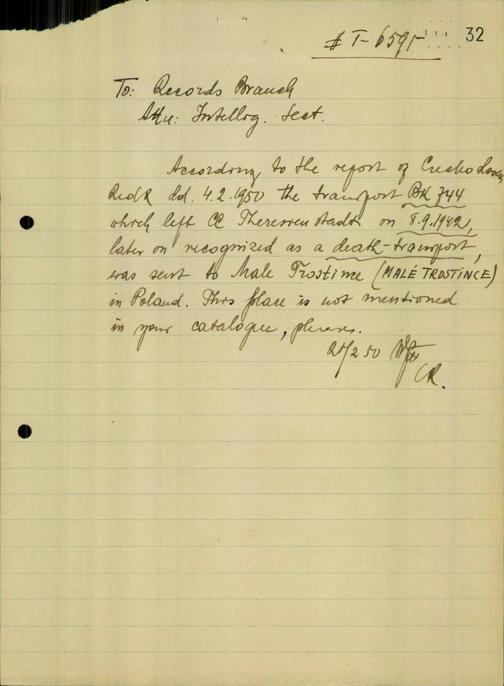 # T-6595
32
To: Records Branch
Attn: Intellig. Sect.
According to the report of Czechoslovak
Red X dd. 4.2.1950 the transport BK 744
which left CC Theresienstadt on 8.9.1942,
later on recognized as a death-transport,
was sent to Male Trostince (MALÉ TROSTINCE)
in Poland. This place is not mentioned
in your catalogue, please.
20/2 50
CR.